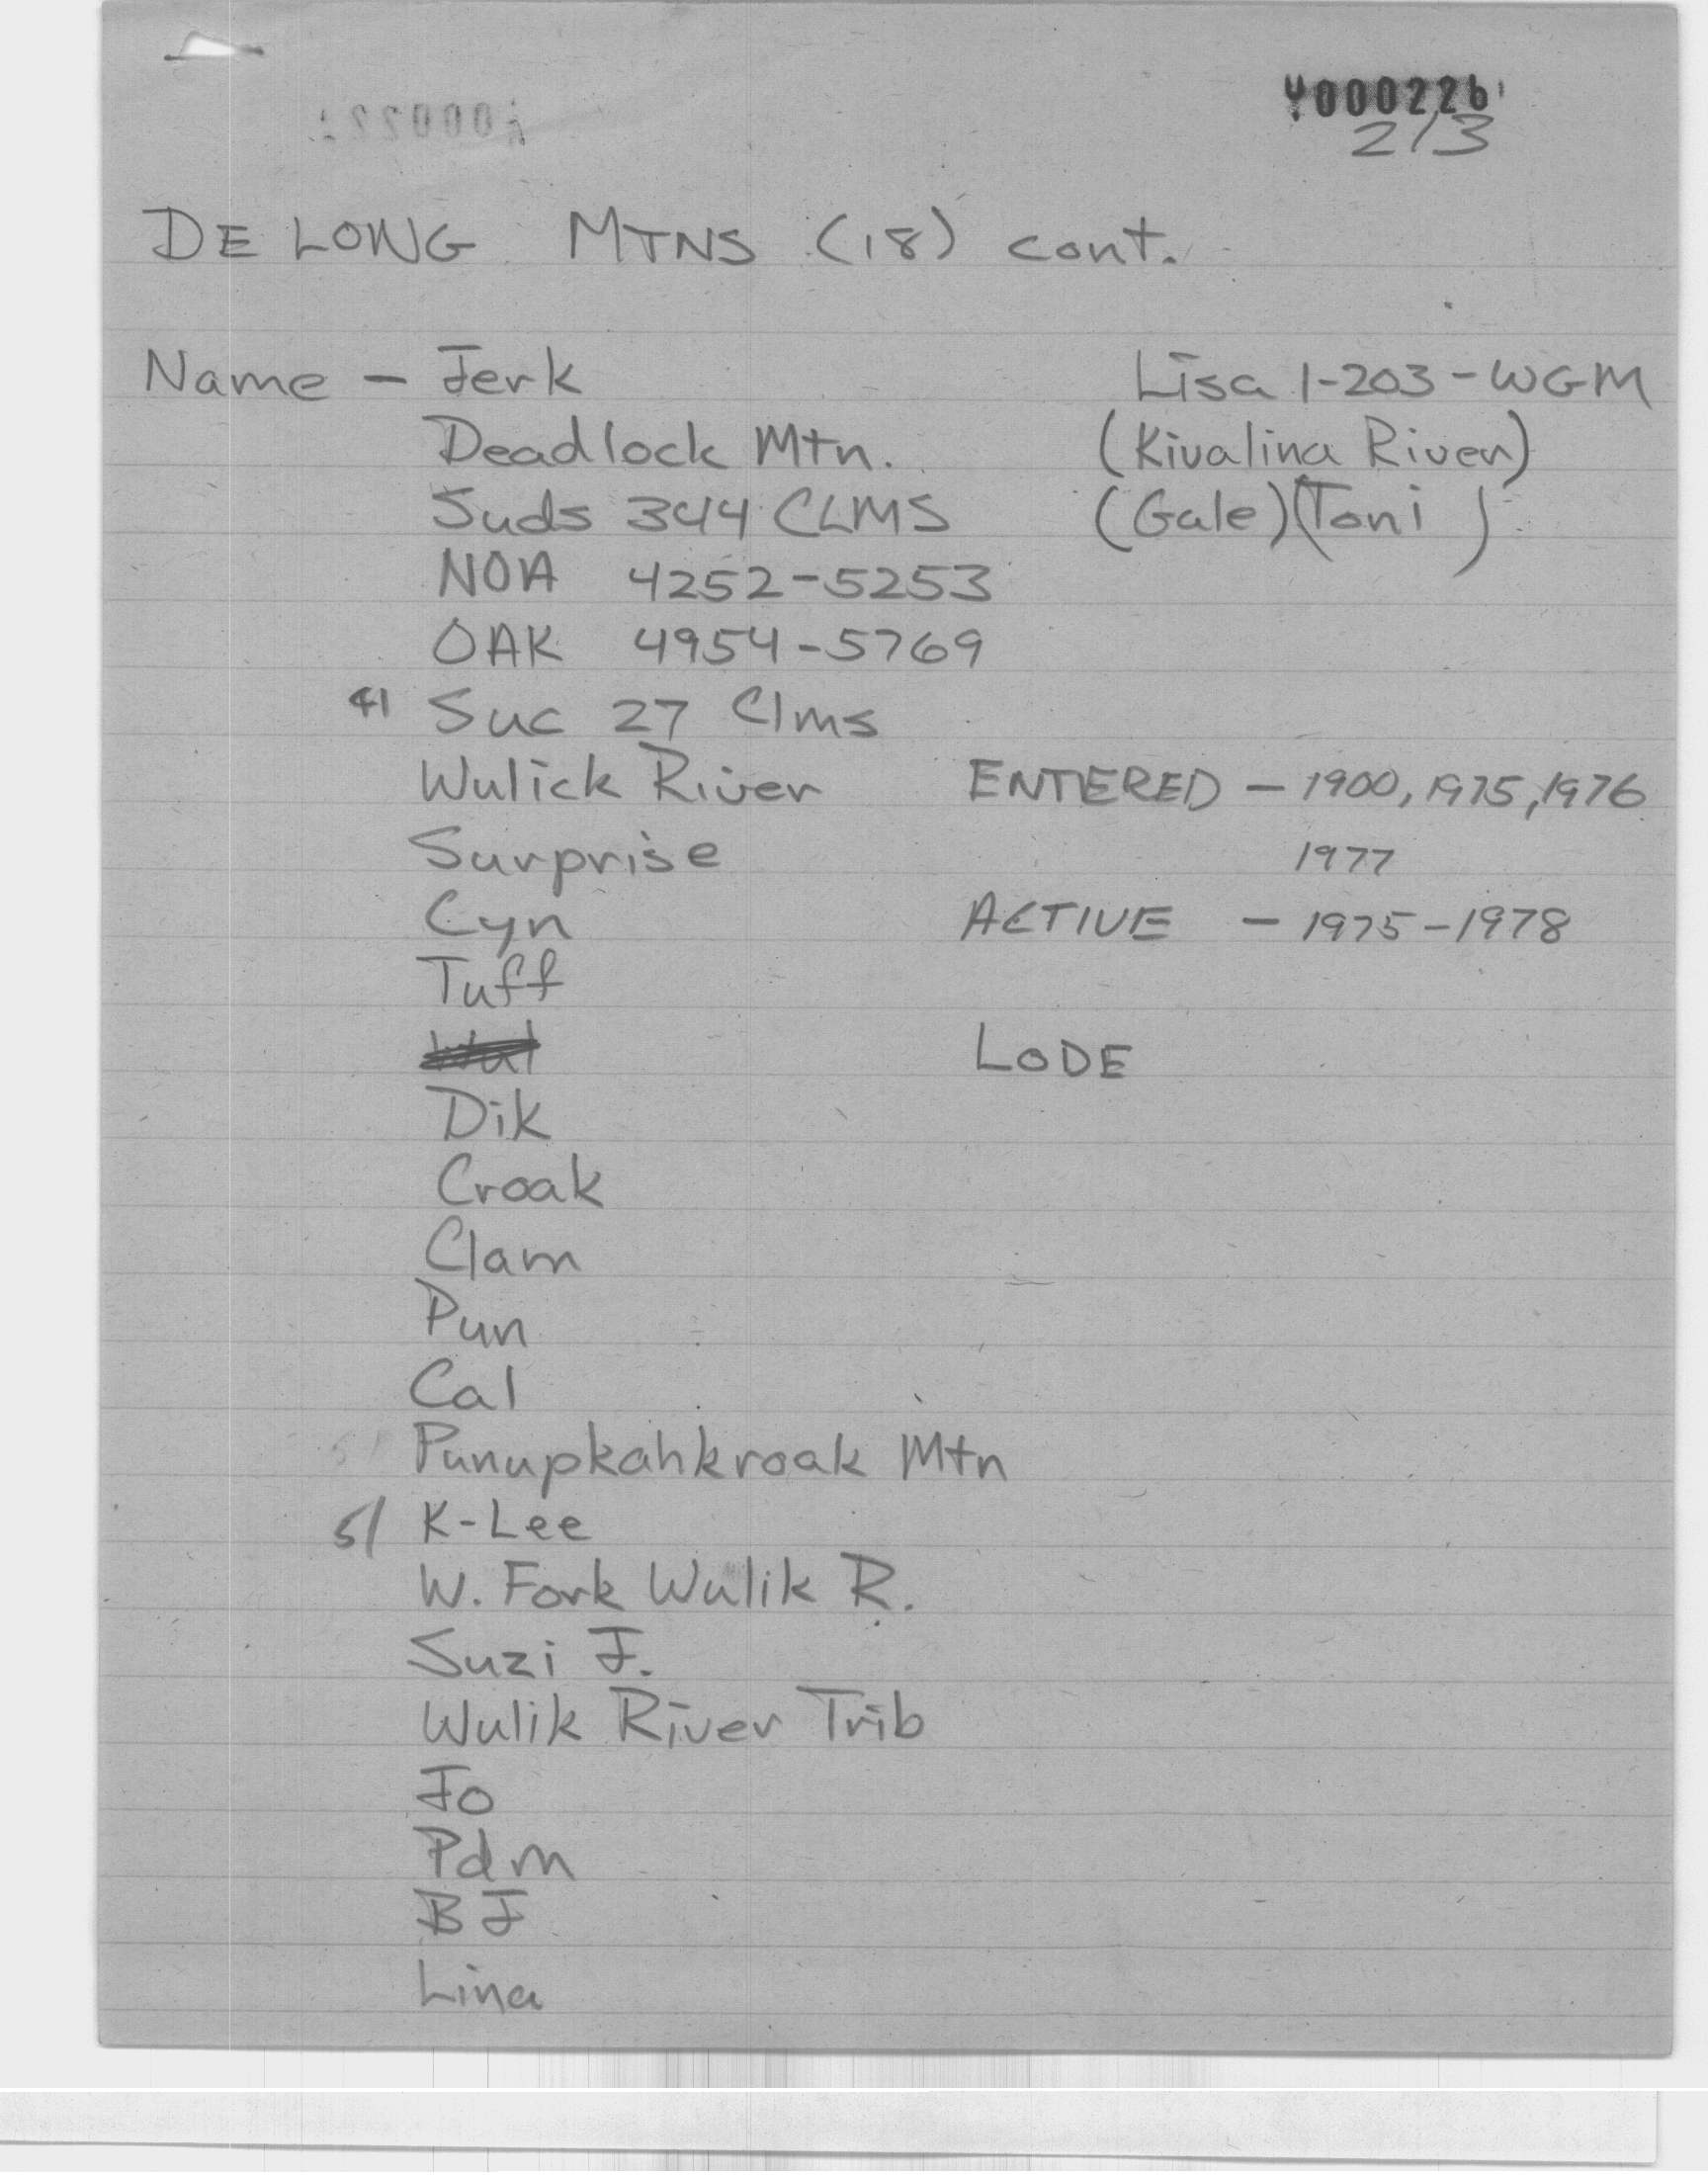 Y000226
2/3
DE LONG MTNS (18) cont.
Name - Jerk Lisa 1-203-WGM
Deadlock Mtn. (Kivalina River)
Suds 344 CLMS (Gale)(Toni )
NOA 4252-5253
OAK 4954-5769
41 Suc 27 Clms
Wulick River ENTERED - 1900, 1975, 1976
Surprise 1977
Cyn ACTIVE - 1975-1978
Tuff
Wul LODE
Dik
Croak
Clam
Pun
Cal
Punupkahkroak Mtn
51 K-Lee
W. Fork Wulik R.
Suzi J.
Wulik River Trib
Jo
Pdm
BJ
Lina